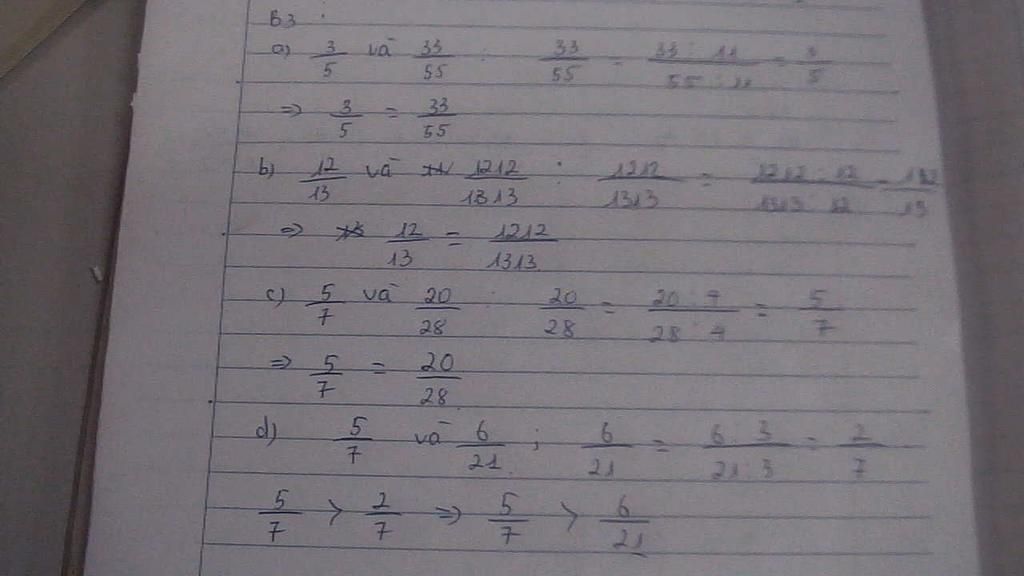 B3 :
a) 3/5 và 33/55 : 33/55 = 33 : 11/55 : 11 = 3/5
=> 3/5 = 33/55
b) 12/13 và 1212/1313 : 1212/1313 = 1212 : 12/1313 : 12 = 12/13
=> 12/13 = 1212/1313
c) 5/7 và 20/28 : 20/28 = 20 : 4/28 : 4 = 5/7
=> 5/7 = 20/28
d) 5/7 và 6/21 ; 6/21 = 6 : 3/21 : 3 = 2/7
5/7 > 2/7 => 5/7 > 6/21